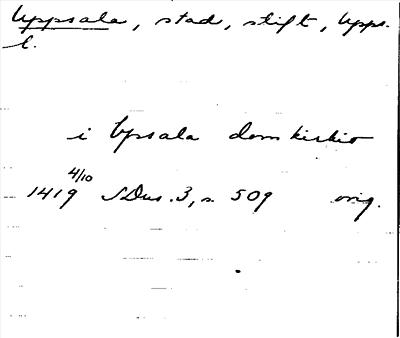 Uppsala, stad, stift, Upps.
l.
i Upsala domkirkio
4/10
1419 SDns. 3, s. 509 orig.